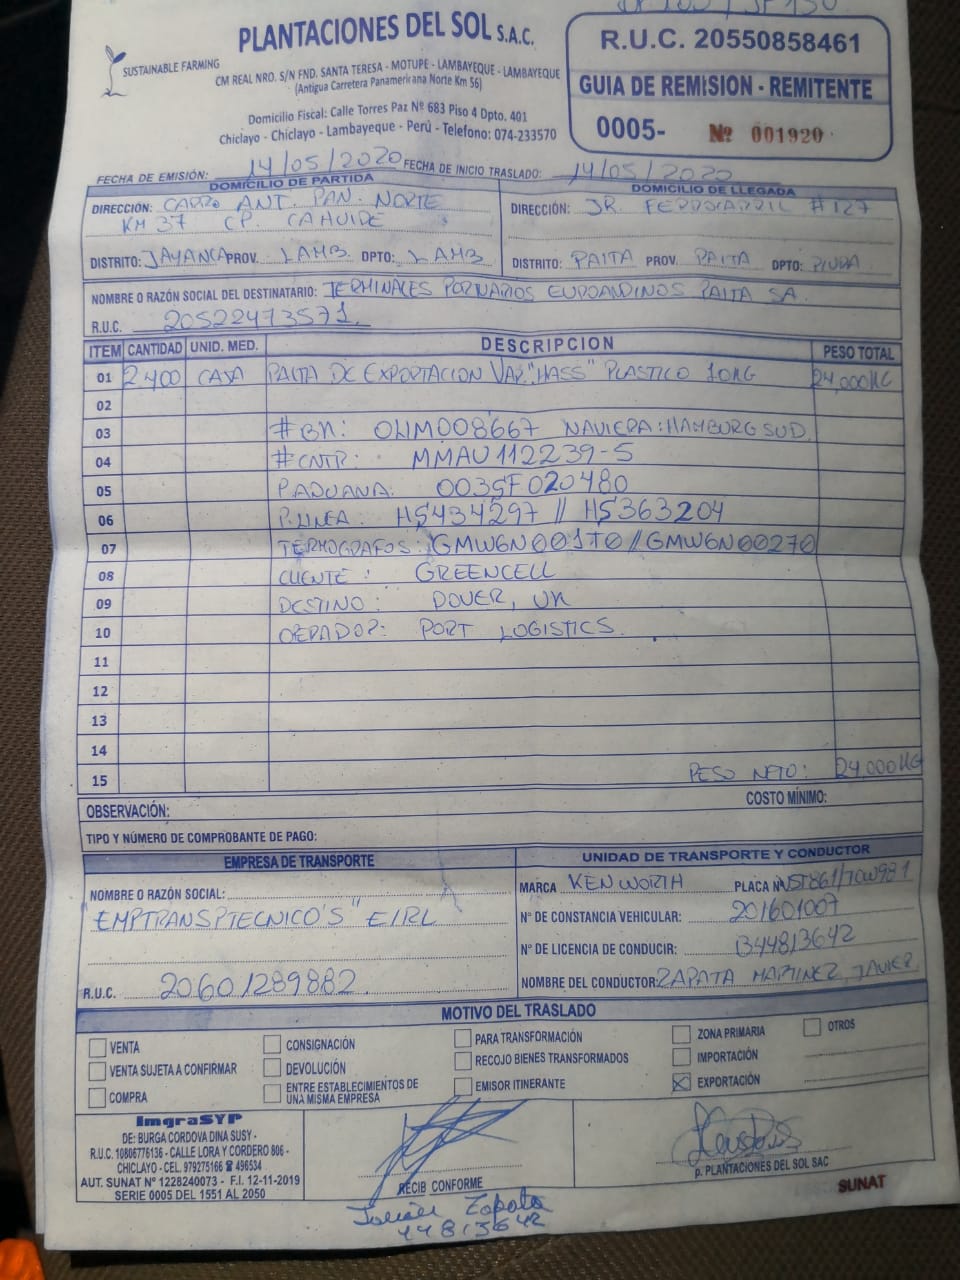 PLANTACIONES DEL SOL S.A.C.
SUSTAINABLE FARMING
CM REAL NRO. S/N FND. SANTA TERESA - MOTUPE - LAMBAYEQUE - LAMBAYEQUE
(Antigua Carretera Panamericana Norte Km 56)
Domicilio Fiscal: Calle Torres Paz Nº 683 Piso 4 Dpto. 401
Chiclayo - Chiclayo - Lambayeque - Perú - Telefono: 074-233570
R.U.C. 20550858461
GUIA DE REMISION - REMITENTE
0005- Nº 001920
FECHA DE EMISIÓN: 14/05/2020 FECHA DE INICIO TRASLADO: 14/05/2020
DOMICILIO DE PARTIDA
DIRECCIÓN: CARR. ANT. PAN. NORTE
KM 37 CP. CAHUIDE
DISTRITO: JAYANCA PROV. LAMB. DPTO: LAMB
DOMICILIO DE LLEGADA
DIRECCIÓN: JR. FERROCARRIL #127
DISTRITO: PAITA PROV. PAITA DPTO: PIURA
NOMBRE O RAZÓN SOCIAL DEL DESTINATARIO: TERMINALES PORTUARIOS EUROANDINOS PAITA SA.
R.U.C. 20522473571.
ITEM CANTIDAD UNID. MED. DESCRIPCION PESO TOTAL
01 2,400 CAJA PALTA DE EXPORTACION VAR. "HASS" PLASTICO 10KG 24,000KG
02
03 #BK: OHM008667 NAVIERA: HAMBURG SUD.
04 #CNTR: MMAU112239-5
05 P.ADUANA: 003GF020480
06 P.LINEA: HS434297 // HS363204
07 TERMOGRAFOS: GMW6N001T0 // GMW6N00270
08 CLIENTE: GREENCELL
09 DESTINO: DOVER, UK
10 OPERADOR: PORT LOGISTICS.
11
12
13
14
15 PESO NETO: 24,000KG
OBSERVACIÓN: COSTO MÍNIMO:
TIPO Y NÚMERO DE COMPROBANTE DE PAGO:
EMPRESA DE TRANSPORTE
NOMBRE O RAZÓN SOCIAL:
EMPTRANSPTECNICO'S" EIRL
R.U.C. 20601289882
UNIDAD DE TRANSPORTE Y CONDUCTOR
MARCA KENWORTH PLACA Nº
N° DE CONSTANCIA VEHICULAR: 201601007
N° DE LICENCIA DE CONDUCIR: B44813642
NOMBRE DEL CONDUCTOR: ZAPATA MARTINEZ, JAVIER
MOTIVO DEL TRASLADO
VENTA
VENTA SUJETA A CONFIRMAR
COMPRA
CONSIGNACIÓN
DEVOLUCIÓN
ENTRE ESTABLECIMIENTOS DE
UNA MISMA EMPRESA
PARA TRANSFORMACIÓN
RECOJO BIENES TRANSFORMADOS
EMISOR ITINERANTE
ZONA PRIMARIA
IMPORTACIÓN
EXPORTACIÓN
OTROS
ImgraSYP
DE: BURGA CORDOVA DINA SUSY -
R.U.C. 10806776136 - CALLE LORA Y CORDERO 806 -
CHICLAYO - CEL. 979275166 ☎ 496534
AUT. SUNAT N° 1228240073 - F.I. 12-11-2019
SERIE 0005 DEL 1551 AL 2050
RECIB CONFORME
Javier Zapata
44813642
p. PLANTACIONES DEL SOL SAC
SUNAT